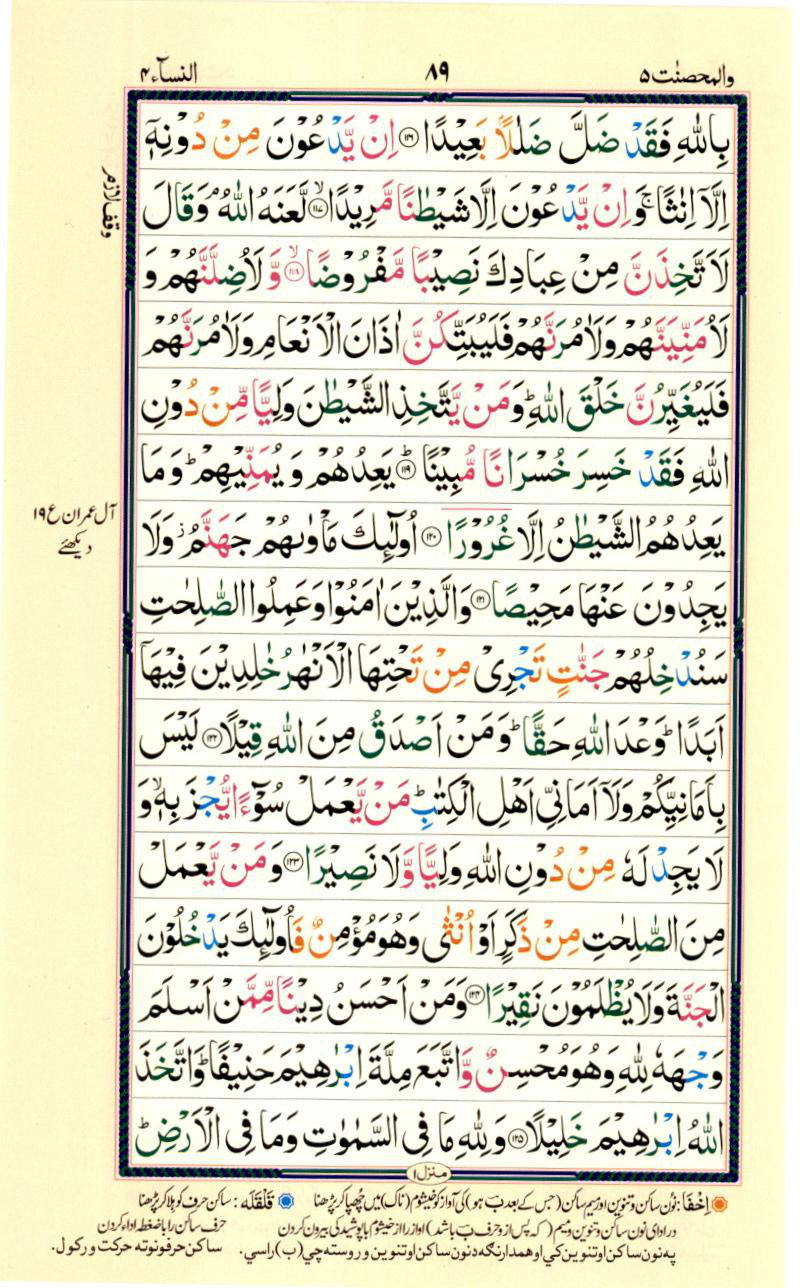 والمحصنٰت ۵ ۸۹ النسآء ۴
بِاللّٰهِ فَقَدْ ضَلَّ ضَلٰلًاۢ بَعِيْدًا ﴿۱۱۶﴾ اِنْ يَّدْعُوْنَ مِنْ دُوْنِهٖۤ
اِلَّاۤ اِنٰثًا ۚ وَاِنْ يَّدْعُوْنَ اِلَّا شَيْطٰنًا مَّرِيْدًا ۙ﴿۱۱۷﴾ لَّعَنَهُ اللّٰهُ ۘ وَقَالَ
وقف لازم
لَاَ تَّخِذَنَّ مِنْ عِبَادِكَ نَصِيْبًا مَّفْرُوْضًا ۙ﴿۱۱۸﴾ وَّلَاُضِلَّنَّهُمْ وَ
لَاُمَنِّيَنَّهُمْ وَلَاٰمُرَنَّهُمْ فَلَيُبَتِّكُنَّ اٰذَانَ الْاَنْعَامِ وَلَاٰمُرَنَّهُمْ
فَلَيُغَيِّرُنَّ خَلْقَ اللّٰهِ ؕ وَمَنْ يَّتَّخِذِ الشَّيْطٰنَ وَلِيًّا مِّنْ دُوْنِ
اللّٰهِ فَقَدْ خَسِرَ خُسْرَانًا مُّبِيْنًا ؕ﴿۱۱۹﴾ يَعِدُهُمْ وَيُمَنِّيْهِمْ ؕ وَمَا
يَعِدُهُمُ الشَّيْطٰنُ اِلَّا غُرُوْرًا ﴿۱۲۰﴾ اُولٰٓئِكَ مَاْوٰىهُمْ جَهَنَّمُ ؗ وَلَا
آل عمران ع ۱۹
دیکھئے
يَجِدُوْنَ عَنْهَا مَحِيْصًا ﴿۱۲۱﴾ وَالَّذِيْنَ اٰمَنُوْا وَعَمِلُوا الصّٰلِحٰتِ
سَنُدْخِلُهُمْ جَنّٰتٍ تَجْرِىْ مِنْ تَحْتِهَا الْاَنْهٰرُ خٰلِدِيْنَ فِيْهَاۤ
اَبَدًا ؕ وَعْدَ اللّٰهِ حَقًّا ؕ وَمَنْ اَصْدَقُ مِنَ اللّٰهِ قِيْلًا ﴿۱۲۲﴾ لَيْسَ
بِاَمَانِيِّكُمْ وَلَاۤ اَمَانِىِّ اَهْلِ الْكِتٰبِ ؕ مَنْ يَّعْمَلْ سُوْٓءًا يُّجْزَ بِهٖ ۙ وَ
لَا يَجِدْ لَهٗ مِنْ دُوْنِ اللّٰهِ وَلِيًّا وَّلَا نَصِيْرًا ﴿۱۲۳﴾ وَمَنْ يَّعْمَلْ
مِنَ الصّٰلِحٰتِ مِنْ ذَكَرٍ اَوْ اُنْثٰى وَهُوَ مُؤْمِنٌ فَاُولٰٓئِكَ يَدْخُلُوْنَ
الْجَنَّةَ وَلَا يُظْلَمُوْنَ نَقِيْرًا ﴿۱۲۴﴾ وَمَنْ اَحْسَنُ دِيْنًا مِّمَّنْ اَسْلَمَ
وَجْهَهٗ لِلّٰهِ وَهُوَ مُحْسِنٌ وَّاتَّبَعَ مِلَّةَ اِبْرٰهِيْمَ حَنِيْفًا ؕ وَاتَّخَذَ
اللّٰهُ اِبْرٰهِيْمَ خَلِيْلًا ﴿۱۲۵﴾ وَلِلّٰهِ مَا فِى السَّمٰوٰتِ وَمَا فِى الْاَرْضِ ؕ
منزل ۱
اِخفَا: نون ساکن و تنوین اور میم ساکن (جس کے بعد ب ہو) کی آواز کو خیشوم (ناک) میں چھپا کر پڑھنا قَلْقَلَہ: ساکن حرف کو ہلا کر پڑھنا
در ادای نون ساکن و تنوین و میم (که پس از و حرف ب باشد) اواز را از خیشوم با پوشیدگی بیرون کردن حرف ساکن را باضغطه اداء کردن
په نون ساکن او تنوین کي او همدارنگه د نون ساکن او تنوین وروسته چي (ب) راسي. ساکن حرفونو ته حرکت ورکول.